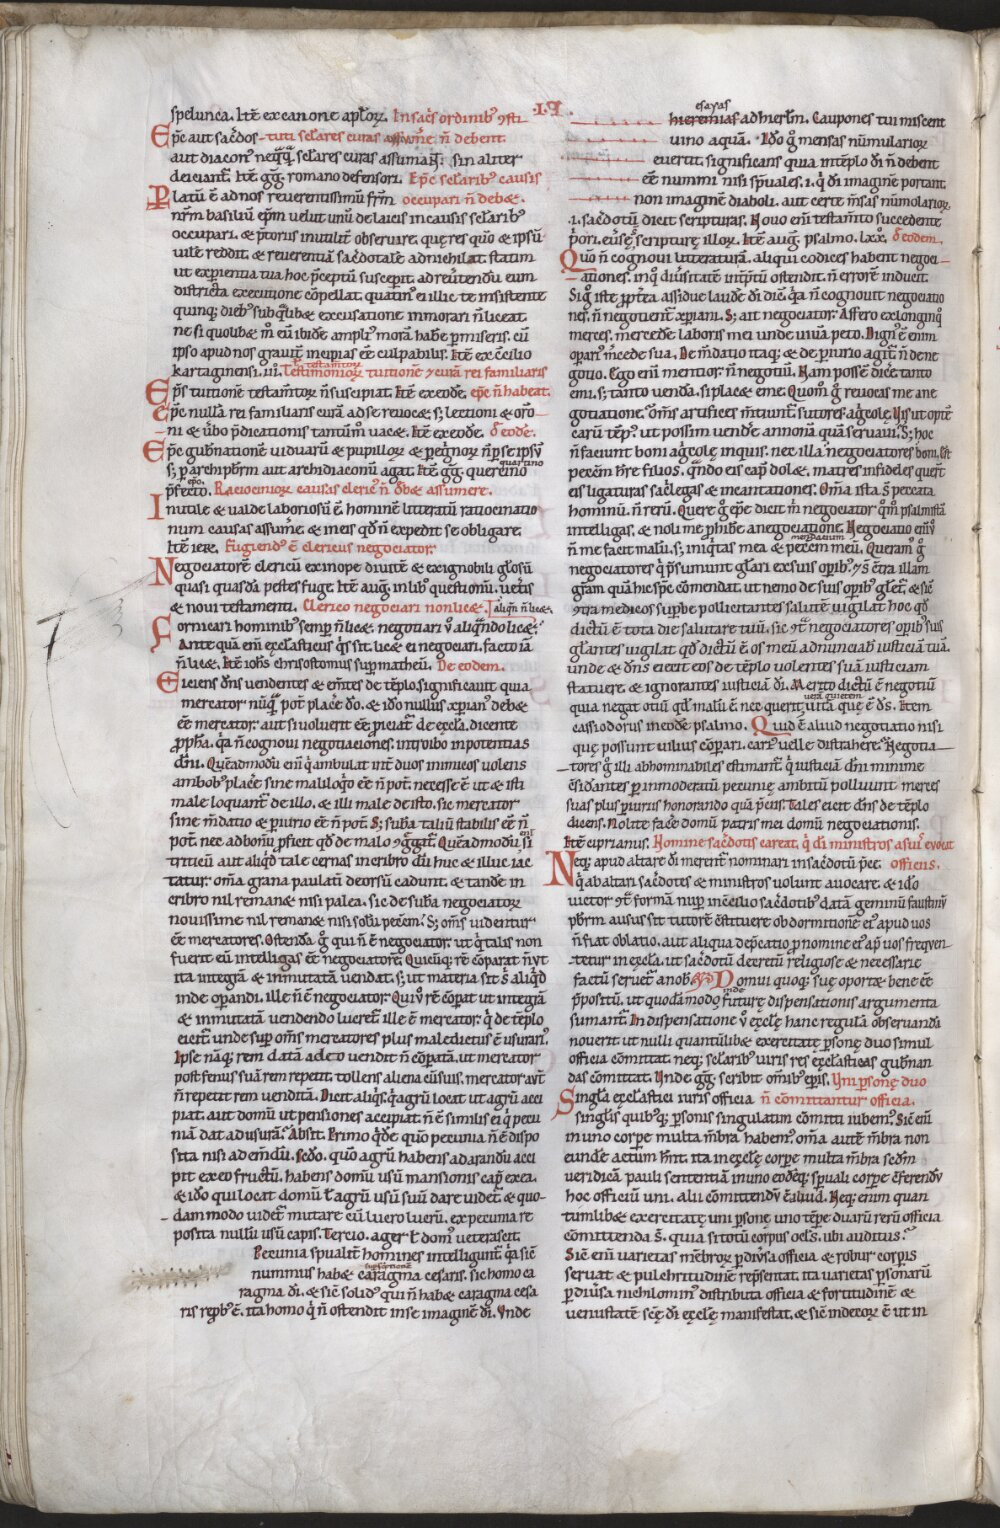 spelunca. Itē ex canone aplꝝ. In sac̄s ordinibꝰ ꝯsti
Ep̄c aut sac̄dos tuti sclares curas assum̄e n̄ debent.
aut diaconꝰ neq̄q̄ sclares curas assumāt. sin aliter
deiciant̄. Itē gḡ. romano defensori. Ep̄c sclaribꝰ causis
Platū ē ad nos reverentissimū fr̄m occupari n̄ debet.
nr̄m basiliū ep̄m velut unū de laicis in causis sclaribꝰ
occupari. & p̄toriis inutilit̄ observire. que res quō & ipsū
vilē reddit. & reverentiā sac̄dotalē adnichilat. statim
ut expientia tua hoc p̄ceptū susceperit. ad revtendū eum
districta executione cōpellat. quatin̄ ei illic te insistente
quinq; diebꝰ sub q̄libet excusatione inmorari n̄ liceat.
ne si quolibet m̄ eū ibidē ampliꝰ morā habe pmiseris. cū
ipso apud nos gravit̄ incipias ēe culpabilis. Itē ex c̄cilio
kartaginensi. iiii. Testimonioꝝ tuitionē ⁊ curā rei familiaris
Ep̄s tuitionē testam̄toꝝ n̄ suscipiat. Itē ex eodē. ep̄c n̄ habeat.
Ep̄c nullā rei familiaris curā ad se revocet. s; lectioni & orō
ni & v̄bo p̄dicationis tantūm̄ vacet. Itē ex eodē. d̄ eodē.
Ep̄c gub̄nationē viduarū & pupilloꝝ & peg̓noꝝ n̄ p se ipsū
s; p archipb̄rm aut archidiaconū agat. Itē gḡ.
p̄fecto. Racocinioꝝ causas clericꝰ n̄ dēb& assumere.
Inutile & valde laboriosū ē hominē litteratū ratiocinatio
num causas assum̄e. & in eis qd̄ n̄ expedit se obligare.
Itē ier̄. Fugiendꝰ ē clericus negociator.
Negociatorē clericū ex inope divitē & ex ignobili gl̄osū
quasi quasdā pestes fuge. Itē auḡ. in libꝰ questionū. vet̄is
& novi testamenti. Clerico negociari non licet. ł aliqn̄ n̄ licet.
Fornicari hominibꝰ semp̄ n̄ licet. negotiari v̊ aliqn̄do licet.
Ante quā enī eccl̄asticus q̄s sit. licet ei negociari. facto iā
n̄ licet. Itē ioh̄s chrisostomus sup matheū. De eodem.
Eiciens dn̄s vendentes & em̄tes de tēplo. significavit quia
mercator nūq̄ pot̄ placē do. & ido nullus xpianꝰ debet
ēe mercator. aut si voluerit ēe. ꝓiciat̄ de eccl̄a. dicente
ꝓph̄a. q̄a n̄ cognovi negotiaciones. introibo in potentias
dn̄i. Quēadmodū enī q̄ ambulat int̄ duos inimicos volens
ambobꝰ placē sine maliloq̊ ēe n̄ pot̄. necesse ē ut & isti
male loquant̄ de illo. & illi male de isto. sic mercator
sine m̄datio & piurio ēe n̄ pot̄. S; suba taliū stabilis ēe n̄
pot̄. nec ad bonū pficit qd̄ de malo ꝯg̓gat̄. Quēadmodū si
triticū aut aliqd̄ tale cernas in cribro dū huc & illuc iac
tatur. oma grana paulatī deorsū cadunt. & tandē in
cribro nil remanet nisi palea. sic de suba negociatoꝝ
novissime nil remanet nisi solū peccm̄. S; oms̄ videntur
ēe mercatores. Ostendā g̊ qui n̄ ē negociator. ut q̄ talis non
fuerit eū intelligas ēe negociatorē. Quicūq; rē cōparat n̄ ut
ita integrā & inmutatā vendat. s; ut materia sit s̄ aliq̄d
inde opandi. ille n̄ ē negociator. Qui v̊ rē cōpat ut integrā
& inmutatā vendendo lucret̄. ille ē mercator. q̄ de tēplo
eicit̄. unde sup oms̄ mercatores plus maledictus ē usurariꝰ.
Ipse nāq; rem datā a deo vendit n̄ cōpatā. ut mercator
post fenus suā rem repetit. tollens aliena cū suis. mercator aut̄
n̄ repetit rem venditā. Dicit aliqs̄. q̄ agrū locat ut agrū acci
piat. aut domū ut pensiones accipiat. n̄ ē similis ei q̄ pecu
niā dat ad usurā? Absit. Primo q̄de quō pecunia n̄ ē dispo
sita nisi ad em̄dū. Sedō. quō agrū habens ad arandū acci
pit ex eo fructū. habens domū usū mansionis cap̄ ex ea.
& idō qui locat domū ł agrū usū suū dare videt̄. & quo
dammodo videt̄ mutare cū lucro lucrū. ex pecunia re
posita nullū usū capis. Tercio. ager ł domꝰ veterascit.
Pecunia spualit̄ homines intelligunt̄. q̄a sic
nummus habet caragma cesaris. sic homo ca
ragma di. & sic solidꝰ qui n̄ habet caragma cesa
ris repbꝰ ē. ita homo q̄ n̄ ostendit in se imaginē di. Unde
esayas
hieremias ad hierlm̄. Caupones tui miscent
vino aquā. Idō g̊ mensas nūmularioꝝ
evertit. significans quia in tēplo di n̄ debent
ēe nummi nisi spuales. i. q̄ di imaginē portant.
non imaginē diaboli. aut certe m̄sas nūmularioꝝ.
i. sac̄dotū dicit scripturas. Novo enī testam̄to succedente
p̄ori. ei scripturę illoꝝ. Itē auḡ. psalmo. lxx. d̄ eodem.
Quō n̄ cognovi litteraturā. aliqui codices habent negoci
ationes. in q̊ div̄sitatē int̄ptū ostendit. n̄ errorē induc̄it.
Siq̊ iste ppt̄ea assidue laudē di dic̄. q̄a n̄ cognovit negociatio
nes. n̄ negotient̄ xpiani. S; ait negociator. Affero ex longinq̊
merces. mercede laboris mei unde vivā peto. Dignꝰ ē enim
opariꝰ m̄cede sua. De m̄datio itaq; & de piurio agit̄ n̄ de ne
gotio. Ego enī mentior n̄ negotiū. Nam possē dic̄e tanto
emi. s; tanto vendā. si placet eme. Quom̊ g̊ revocas me a ne
gotiatione. Om̄s artifices m̄tiunt̄. sutores. ag̓colę. Vis ut optē
carū tēpꝰ. ut possim vende annonā quā servavi. S; hoc
n̄ faciunt boni ag̓colę inquis. nec illa negociatores boni. Est
peccm̄ hre filios. q̄ndo eis cap̄ dolet. matres infideles quer̄t
eis ligaturas sac̓legas & incantationes. Oma ista s̄ peccata
hominū. n̄ rerū. Quere g̊ ep̄c dicit m̄ negociator qm̄ psalmistā
intelligas. & noli me phib̄e a negociatione. Negociatio enī
n̄ me facit malū. s; iniq̄tas mea & peccm̄ meū. Querant g̊
negociatores q̄ p̄sumunt glari ex suis opibꝰ. ꝯt̄ra illam
gr̄am quā hic sp̄c cōmendat. ut nemo de suis opibꝰ glet̄. & sic
ꝯtra medicos supbe pollicitantes salutē vigilat hoc qd̄
dictū ē tota die salutare tuū. sic ꝯt̄ negociatores opibꝰ suis
gl̄antes vigilat qd̄ dictū ē os meū adnunciab̄ iusticiā tuā.
unde & dn̄s eicit eos de tēplo volentes suā iusticiam
statuere. & ignorantes iusticiā di. Merito dictū ē negotiū
quia negat otiū. qd̄ malū ē. nec querit. vitā quę ē ds̄. Item
cassiodorus in eodē psalmo. Quid ē aliud negotiatio nisi
quę possunt vilius cōpari. cariꝰ velle distrahere. Negotia
tores g̊ illi abhominabiles estimant̄ q̄ iusticiā dn̄i minime
cōsidantes p inmoderatū pecunię ambitū polluunt merces
suas plus piuriis honorando quā p̄ciis. Tales eicit dn̄s de tēplo
dicens. Nolite facē domū patris mei domū negociationis.
Itē ciprianus. Homine sac̄dotis careat. q̄ di ministros a suiꝰ evocat
Neq; apud altare di meren̄t nominari in sac̄dotū p̄ce. officiis.
q̄ ab altari sac̄dotes & ministros volunt avocare. & idō
victor ꝯt̄ formā nup̄ in c̄cilio sac̄dotibꝰ datā geminiū faustinū
pb̄rm ausus sit tutorē c̄stituere. ob dormitionē eiꝰ apud vos
n̄ fiat oblatio. aut aliqua dep̄catio p nomine eiꝰ apꝰ vos freqven
tetur in eccl̄a. ut sac̄dotū decretū religiose & necessarie
factū servet̄ a nob̄. Domui quoq; suę oportet bene ēe
p̄positū. ut quodāmodo futurę dispensationis argumenta
sumant̄. In dispensatione v̊ eccl̄ę hanc regulā observandā
noverit. ut nulli quantūlibet exercitatę psonę duo simul
officia cōmittat. neq; sclaribꝰ viris res eccl̄asticas gub̄nan
das cōmittat. Unde gḡ. scribit om̄ibꝰ ep̄is. Uni psonę duo
Singl̄a eccl̄astici iuris officia n̄ committantur officia.
singl̄is quibꝰq; psonis singulatim cōmitti iubemꝰ. Sic enī
in uno corpe multa m̄bra habemꝰ. oma autē m̄bra non
eundē actum hn̄t. ita in eccl̄ę corpe multa m̄bra scdm̄
veridicā pauli sententiā in uno eodeq; spuali corpe c̄ferendū
hoc officiū uni. alii cōmittendū ē aliud. Neq; enim quan
tumlibet exercitatę uni psonę uno tēpe duarū rerū officia
cōmittenda s̄. quia si totū corpus ocls̄. ubi auditus?
Sic enī varietas m̄broꝝ p div̄sa officia & robur corpis
servat & pulchritudinē rep̄sentat. ita varietas psonarū
p div̄sa nichlomin̄ distributa officia & fortitudinē &
venustatē scę di eccl̄ę manifestat. & sic indecoꝝ ē ut in